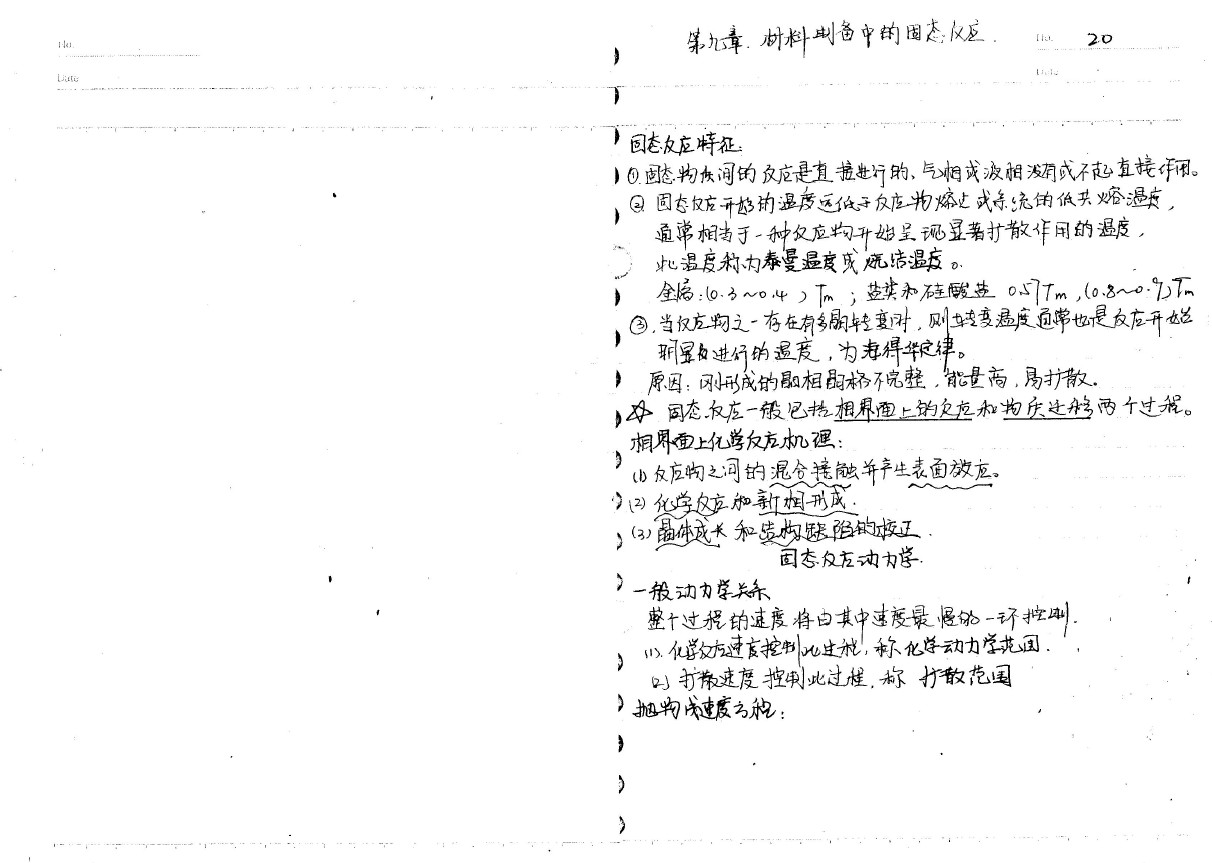 No.
Date
第九章. 材料制备中的固态反应.
No. 20
Date
固态反应特征:
①.固态物质间的反应是直接进行的、气相或液相没有或不起直接作用。
② 固态反应开始的温度远低于反应物熔点或系统的低共熔温度,
通常相当于一种反应物开始呈现显著扩散作用的温度,
此温度称为泰曼温度或烧结温度。
金属:(0.3~0.4)Tm ; 盐类和硅酸盐 0.57Tm ,(0.8~0.9)Tm
③.当反应物之一存在有多晶转变时, 则转变温度通常也是反应开始
明显进行的温度, 为海得华定律。
原因: 刚形成的晶相晶格不完整, 能量高, 易扩散。
☆ 固态反应一般包括相界面上的反应和物质迁移两个过程。
相界面上化学反应机理:
(1) 反应物之间的混合接触并产生表面效应。
(2) 化学反应和新相形成.
(3) 晶体成长和结构缺陷的校正.
固态反应动力学.
一般动力学关系
整个过程的速度将由其中速度最慢的一环控制.
(1). 化学反应速度控制此过程, 称化学动力学范围.
(2) 扩散速度控制此过程, 称 扩散范围
抛物线速度方程: